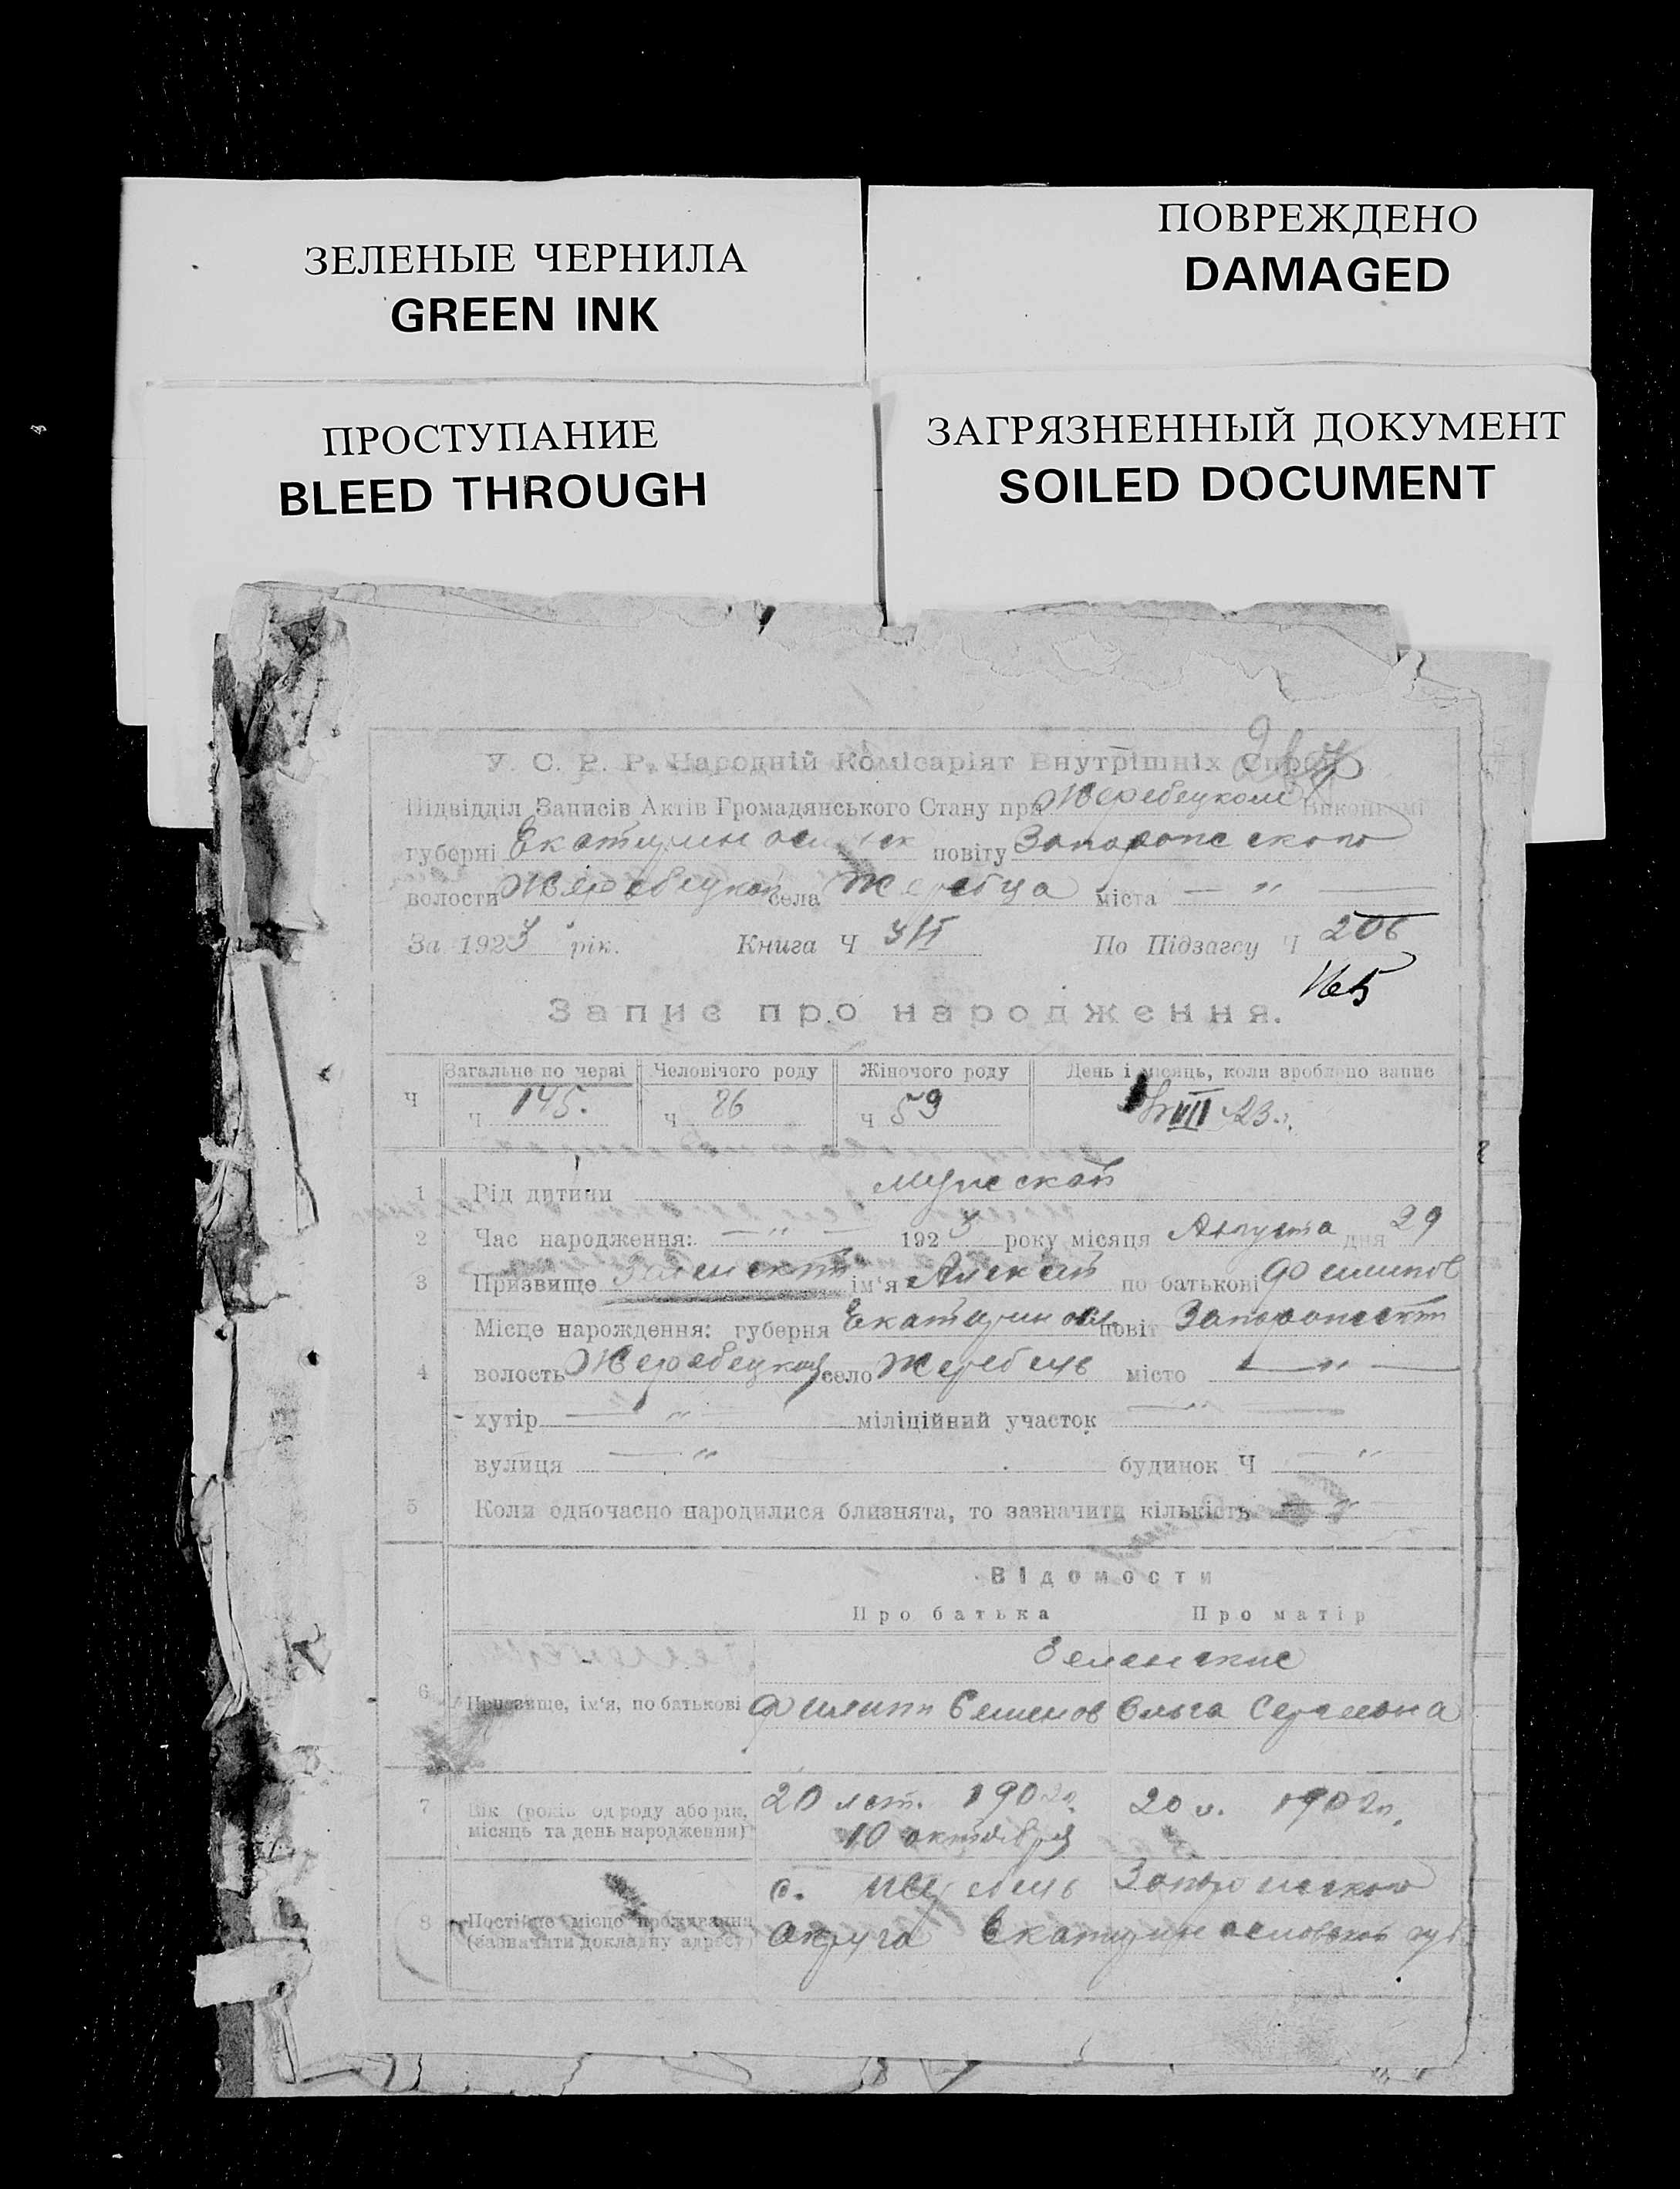 ЗЕЛЕНЫЕ ЧЕРНИЛА
GREEN INK
ПОВРЕЖДЕНО
DAMAGED
ПРОСТУПАНИЕ
BLEED THROUGH
ЗАГРЯЗНЕННЫЙ ДОКУМЕНТ
SOILED DOCUMENT
У. С. Р. Р. Народній Комісаріят Внутрішніх Справ
Підвідділ Записів Актів Громадянського Стану при Жеребецком Виконкомі
губерні Екатеринослав повіту Запорожского
волости Жеребецкой села Жеребца міста — " —
За 1923 рік. Книга Ч По Підзагсу Ч 206
Запис про народження.
Загальне по черзі Человічого роду Жіночого роду День і місяць, коли зроблено запис
Ч Ч 145. Ч 86 Ч 59 VIII 23.
1 Рід дитини мужской
2 Час народження: — " — 1923 року місяця Августа дня 29
3 Призвище Зеленский ім'я Алексей по батькові Филипов
Місце народження: губерня Екатериносл. повіт Запорожский
4 волость Жеребецкой село Жеребець місто — " —
хутір — " міліційний участок — " —
вулиця — " будинок Ч — "
5 Коли одночасно народилися близнята, то зазначити кількість — "
Відомости
Про батька Про матір
Зеленские
6 Призвище, ім'я, по батькові Филипп Семенов Ольга Сергеевна
7 Вік (років од роду або рік, 20 лет. 1902 г. 20 л. 1902 г.
місяць та день народження) 10 октября
с. Жеребець Запорожского
8 Постійне місце проживання
(зазначити докладну адресу) Округа Екатеринославской губ.